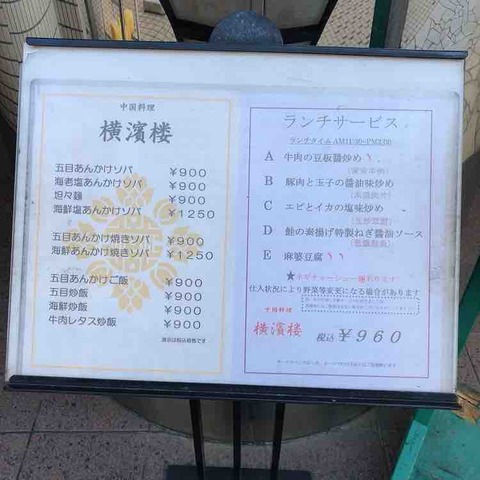 中国料理
横濱楼
五目あんかけソバ ¥900
海老塩あんかけソバ ¥900
坦々麺 ¥900
海鮮塩あんかけソバ ¥1250
五目あんかけ焼きソバ ¥900
海鮮あんかけ焼きソバ ¥1250
五目あんかけご飯 ¥900
五目炒飯 ¥900
海鮮炒飯 ¥900
牛肉レタス炒飯 ¥900
表示は税込価格です
ランチサービス
ランチタイム AM11:30~PM2:00
A 牛肉の豆板醤炒め
B 豚肉と玉子の醤油味炒め
C エビとイカの塩味炒め
D 鮭の素揚げ特製ねぎ醤油ソース
E 麻婆豆腐
★ネギチャーシュー麺有ります
仕入状況により野菜等変更になる場合があります
中国料理
横濱楼 税込 ¥960